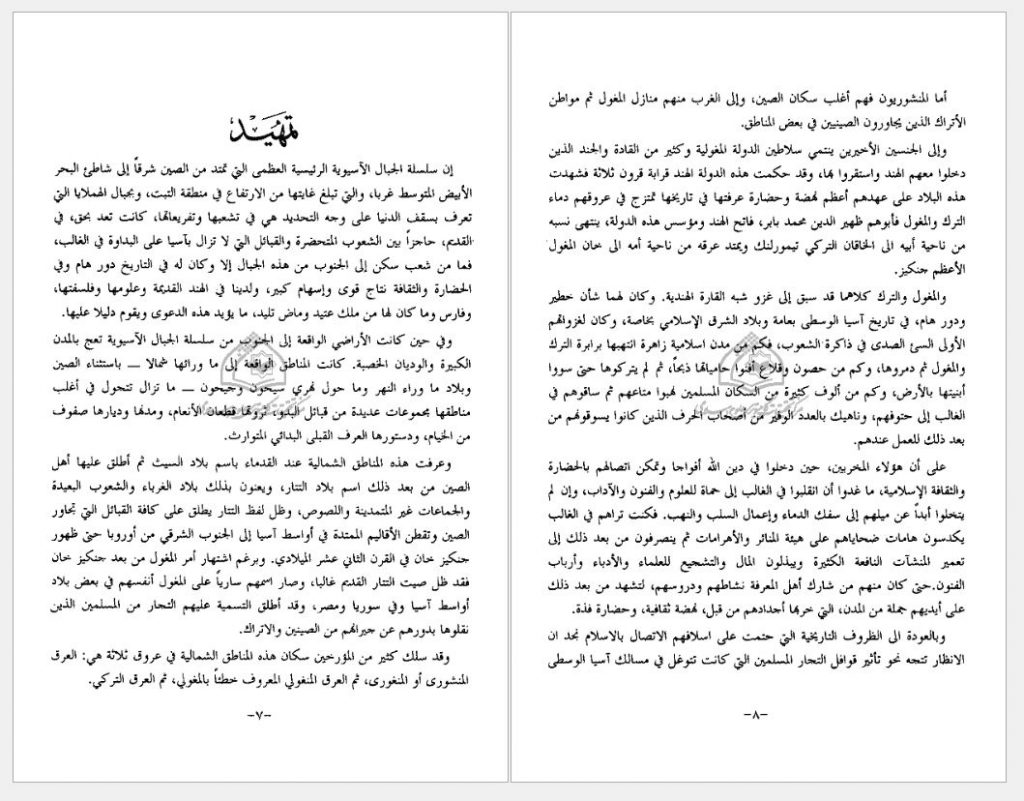 تمهيد
إن سلسلة الجبال الآسيوية الرئيسية العظمى التي تمتد من الصين شرقاً إلى شاطئ البحر
الأبيض المتوسط غربا، والتي تبلغ غايتها من الارتفاع في منطقة التبت، وبجبال الهملايا التي
تعرف بسقف الدنيا على وجه التحديد هي في تشعبها وتفريعاتها، كانت تعد بحق، في
القديم، حاجزاً بين الشعوب المتحضرة والقبائل التي لا تزال بآسيا على البداوة في الغالب،
فما من شعب سكن إلى الجنوب من هذه الجبال إلا وكان له في التاريخ دور هام وفي
الحضارة والثقافة نتاج قوى وإسهام كبير، ولدينا في الهند القديمة وعلومها وفلسفتها،
وفارس وما كان لها من ملك عتيد وماض تليد، ما يؤيد هذه الدعوى ويقوم دليلا عليها.
وفي حين كانت الأراضي الواقعة إلى الجنوب من سلسلة الجبال الآسيوية تعج بالمدن
الكبيرة والوديان الخصبة. كانت المناطق الواقعة إلى ما ورائها شمالا — باستثناء الصين
وبلاد ما وراء النهر وما حول نهري سيحون وجيحون — ما تزال تتحول في أغلب
مناطقها بمجموعات عديدة من قبائل البدو، ثروتها قطعان الأنعام، ومدنها وديارها صفوف
من الخيام، ودستورها العرف القبلى البدائي المتوارث.
وعرفت هذه المناطق الشمالية عند القدماء باسم بلاد السيث ثم أطلق عليها أهل
الصين من بعد ذلك اسم بلاد التتار، ويعنون بذلك بلاد الغرباء والشعوب البعيدة
والجماعات غير المتمدينة واللصوص، وظل لفظ التتار يطلق على كافة القبائل التي تجاور
الصين وتقطن الأقاليم الممتدة في أواسط آسيا إلى الجنوب الشرقي من أوروبا حتى ظهور
جنكيز خان في القرن الثاني عشر الميلادي. وبرغم اشتهار أمر المغول من بعد جنكيز خان
فقد ظل صيت التتار القديم غالبا، وصار اسمهم سارياً على المغول أنفسهم في بعض بلاد
أواسط آسيا وفي سوريا ومصر، وقد أطلق التسمية عليهم التجار من المسلمين الذين
نقلوها بدورهم عن جيرانهم من الصينين والاتراك.
وقد سلك كثير من المؤرخين سكان هذه المناطق الشمالية في عروق ثلاثة هي: العرق
المنشورى أو المنغورى، ثم العرق المنغولي المعروف خطئاً بالمغولي، ثم العرق التركي.
-٧-
أما المنشوريون فهم أغلب سكان الصين، وإلى الغرب منهم منازل المغول ثم مواطن
الأتراك الذين يجاورون الصينيين في بعض المناطق.
وإلى الجنسين الأخيرين ينتمي سلاطين الدولة المغولية وكثير من القادة والجند الذين
دخلوا معهم الهند واستقروا بها، وقد حكمت هذه الدولة الهند قرابة قرون ثلاثة فشهدت
هذه البلاد على عهدهم أعظم نهضة وحضارة عرفتها في تاريخها تمتزج في عروقهم دماء
الترك والمغول فأبوهم ظهير الدين محمد بابر، فاتح الهند ومؤسس هذه الدولة، ينتهى نسبه
من ناحية أبيه الى الخاقان التركي تيمورلنك ويمتد عرقه من ناحية أمه الى خان المغول
الأعظم جنكيز.
والمغول والترك كلاهما قد سبق إلى غزو شبه القارة الهندية. وكان لهما شأن خطير
ودور هام، في تاريخ آسيا الوسطى بعامة وبلاد الشرق الإسلامي بخاصة، وكان لغزواتهم
الأولى السئ الصدى في ذاكرة الشعوب، فكم من مدن اسلامية زاهرة انتهبها برابرة الترك
والمغول ثم دمروها، وكم من حصون وقلاع أفنوا حامياتها ذبحاً، ثم لم يتركوها حتى سووا
أبنيتها بالأرض، وكم من ألوف كثيرة من السكان المسلمين نهبوا متاعهم ثم ساقوهم في
الغالب إلى حتوفهم، وناهيك بالعدد الوفير من أصحاب الحرف الذين كانوا يسوقونهم من
بعد ذلك للعمل عندهم.
على أن هؤلاء المخربين، حين دخلوا في دين الله أفواجا وتمكن اتصالهم بالحضارة
والثقافة الإسلامية، ما غدوا أن انقلبوا في الغالب إلى حماة للعلوم والفنون والآداب، وإن لم
يتخلوا أبداً عن ميلهم إلى سفك الدماء وإعمال السلب والنهب. فكنت تراهم في الغالب
يكدسون هامات ضحاياهم على هيئة المنائر والأهرامات ثم ينصرفون من بعد ذلك إلى
تعمير المنشآت النافعة الكثيرة ويبذلون المال والتشجيع للعلماء والأدباء وأرباب
الفنون.حتى كان منهم من شارك أهل المعرفة نشاطهم ودروسهم، لتشهد من بعد ذلك
على أيديهم جملة من المدن، التي خربها أجدادهم من قبل، نهضة ثقافية، وحضارة فذة.
وبالعودة الى الظروف التاريخية التي حتمت على اسلافهم الاتصال بالاسلام نجد ان
الانظار تتجه نحو تأثير قوافل التجار المسلمين التي كانت تتوغل في مسالك آسيا الوسطى
-٨-